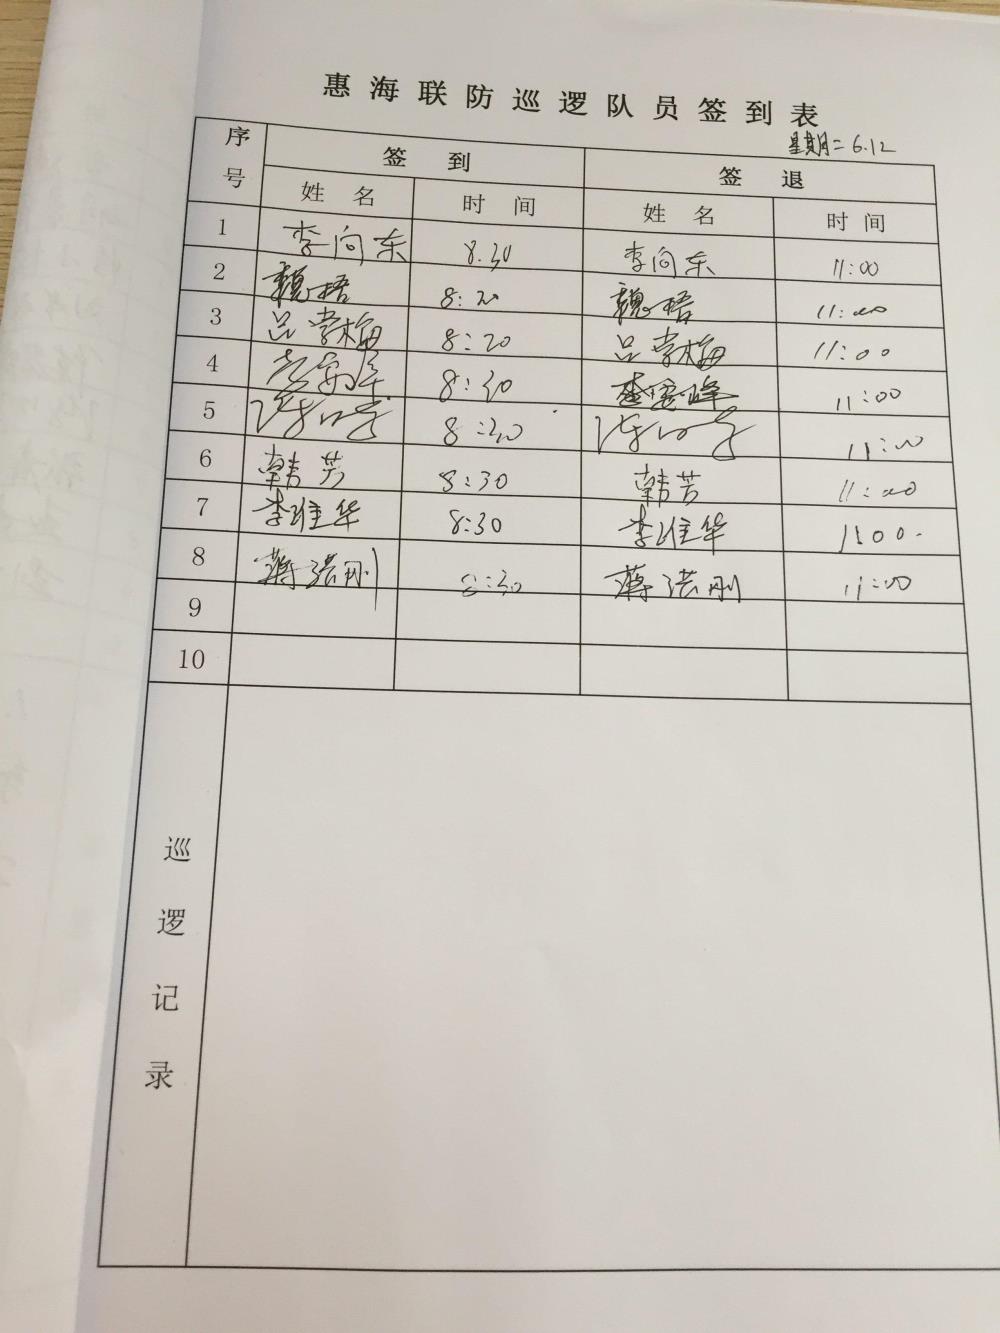 惠海联防巡逻队员签到表
星期二 6.12
序号 签到 签退
姓名 时间 姓名 时间
1 李向东 8.30 李向东 11:00
2 魏梧 8:20 魏梧 11:00
3 吕常梅 8:20 吕常梅 11:00
4 8:30 11:00
5 8:30 11:00
6 韩芳 8:30 韩芳 11:00
7 李维华 8:30 李维华 1100.
8 蒋洪刚 8:30 蒋洪刚 11:00
9
10
巡逻记录